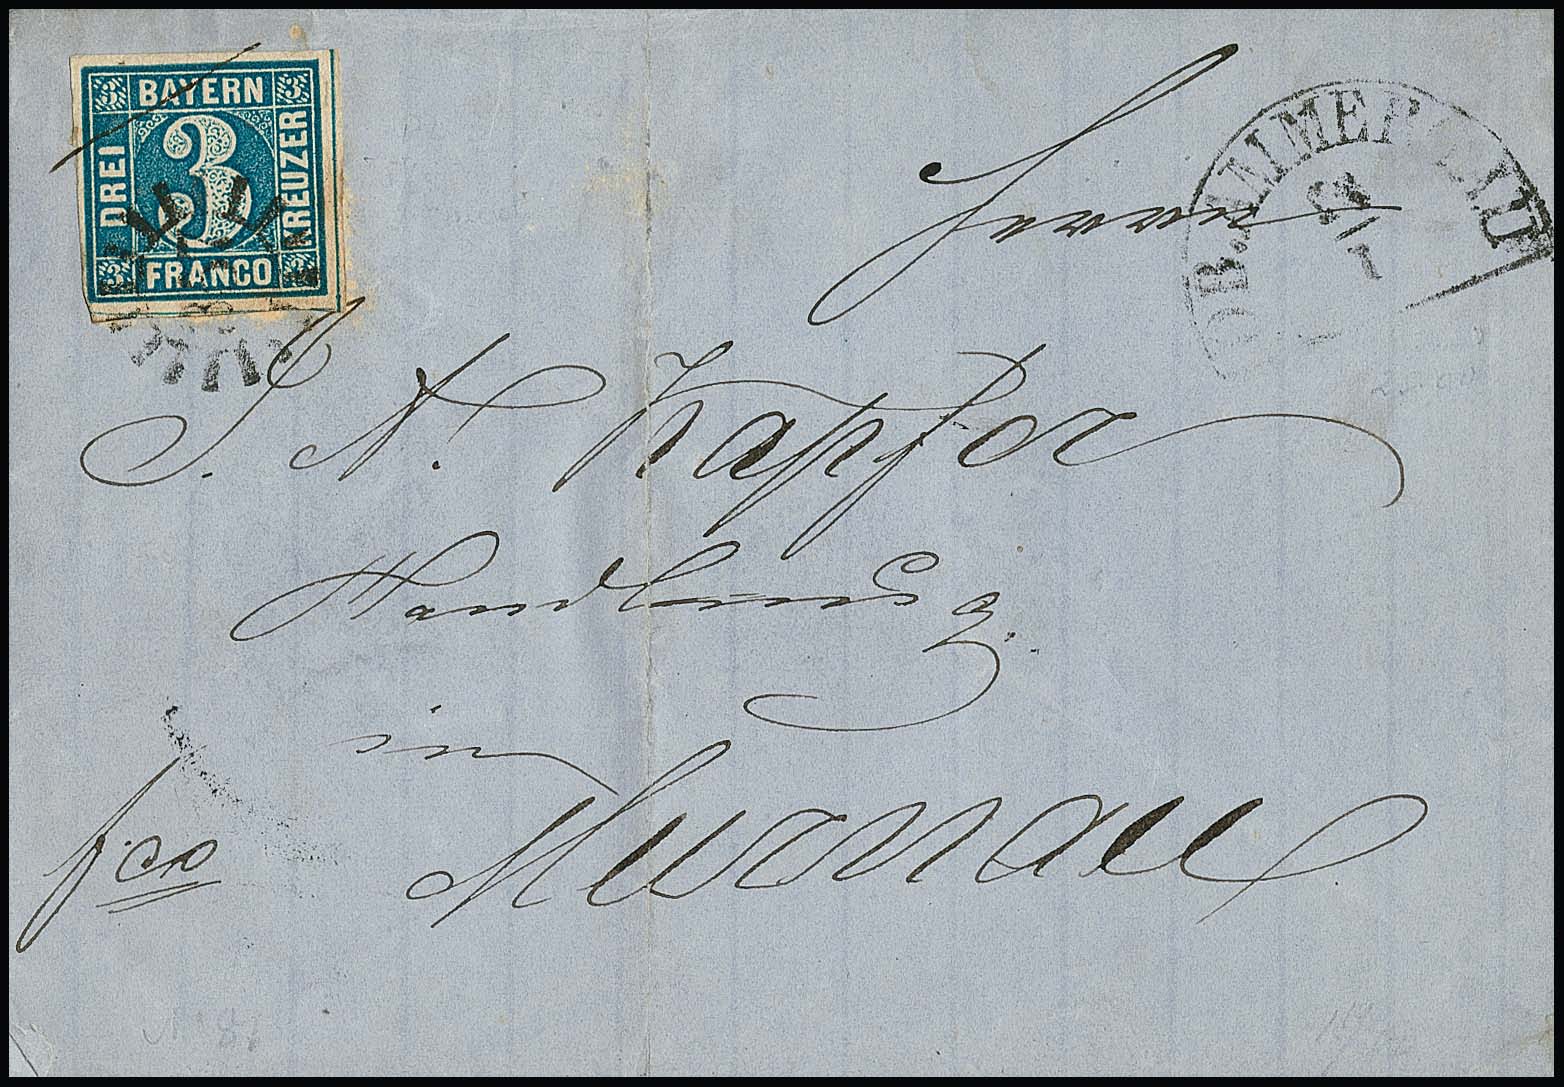 BAYERN
3 3
DREI
3
KREUZER
FRANCO
3 3
OB.AMMERGAU
Herrn
J. N. Kapfer
Handlung
in
fco Murnau